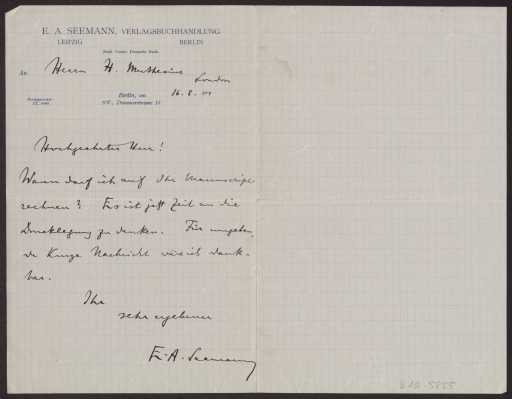 E. A. SEEMANN, VERLAGSBUCHHANDLUNG
LEIPZIG BERLIN
Bank-Conto: Deutsche Bank.
An Herrn H. Muthesius
London
Berlin, am 16. 8.
Hochgeehrter Herr!
Wann darf ich auf Ihr Manuscript
rechnen? Es ist jetzt Zeit an die
Drucklegung zu denken. Für umgehen-
de kurze Nachricht wäre ich dank-
bar.
Ihr
sehr ergebener
E. A. Seemann